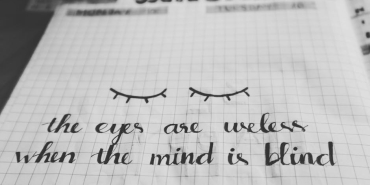 the eyes are useless
when the mind is blind